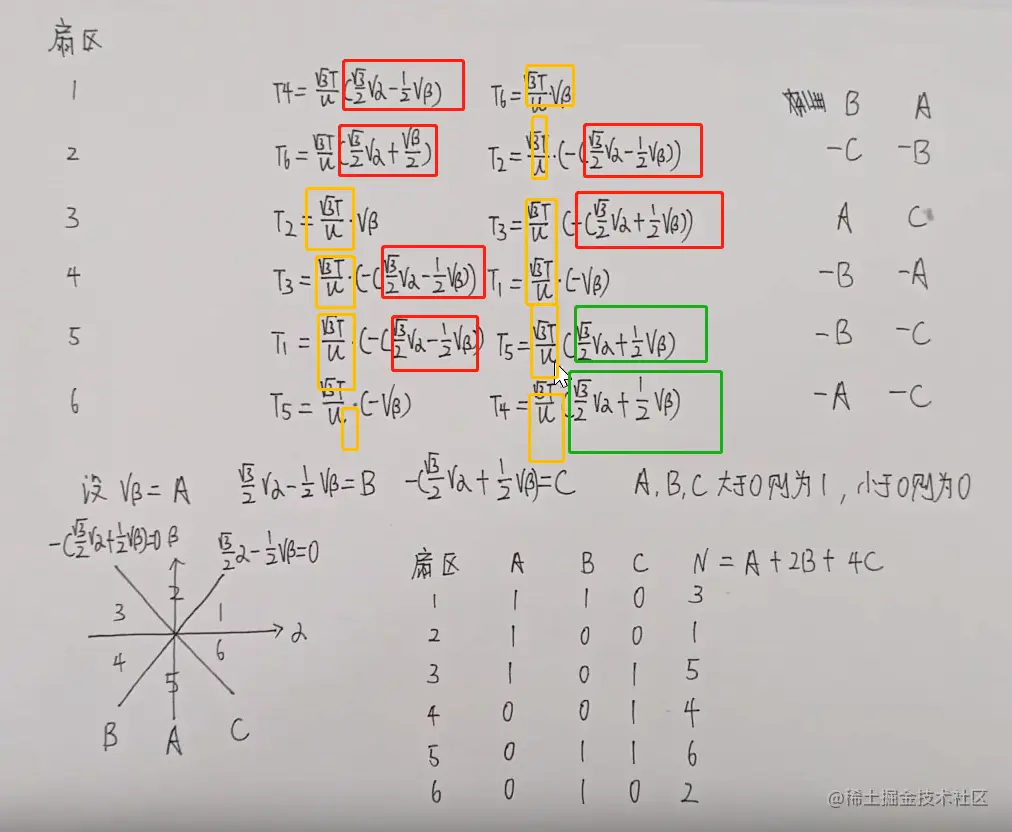 扇区
1 T4=√3T/U(√3/2Vα-1/2Vβ) T6=√3T/U Vβ B A
2 T6=√3T/U(√3/2Vα+Vβ/2) T2=√3T/U·(-(√3/2Vα-1/2Vβ)) -C -B
3 T2=√3T/U·Vβ T3=√3T/U(-(√3/2Vα+1/2Vβ)) A C
4 T3=√3T/U·(-(√3/2Vα-1/2Vβ)) T1=√3T/U·(-Vβ) -B -A
5 T1=√3T/U·(-(√3/2Vα-1/2Vβ)) T5=√3T/U(√3/2Vα+1/2Vβ) -B -C
6 T5=√3T/U·(-Vβ) T4=√3T/U(√3/2Vα+1/2Vβ) -A -C
设 Vβ=A √3/2Vα-1/2Vβ=B -(√3/2Vα+1/2Vβ)=C A,B,C大于0则为1,小于0则为0
-(√3/2Vα+1/2Vβ)=0 β √3/2α-1/2Vβ=0
2
3 1
α
4 6
5
B A C
扇区 A B C N=A+2B+4C
1 1 1 0 3
2 1 0 0 1
3 1 0 1 5
4 0 0 1 4
5 0 1 1 6
6 0 1 0 2
@稀土掘金技术社区